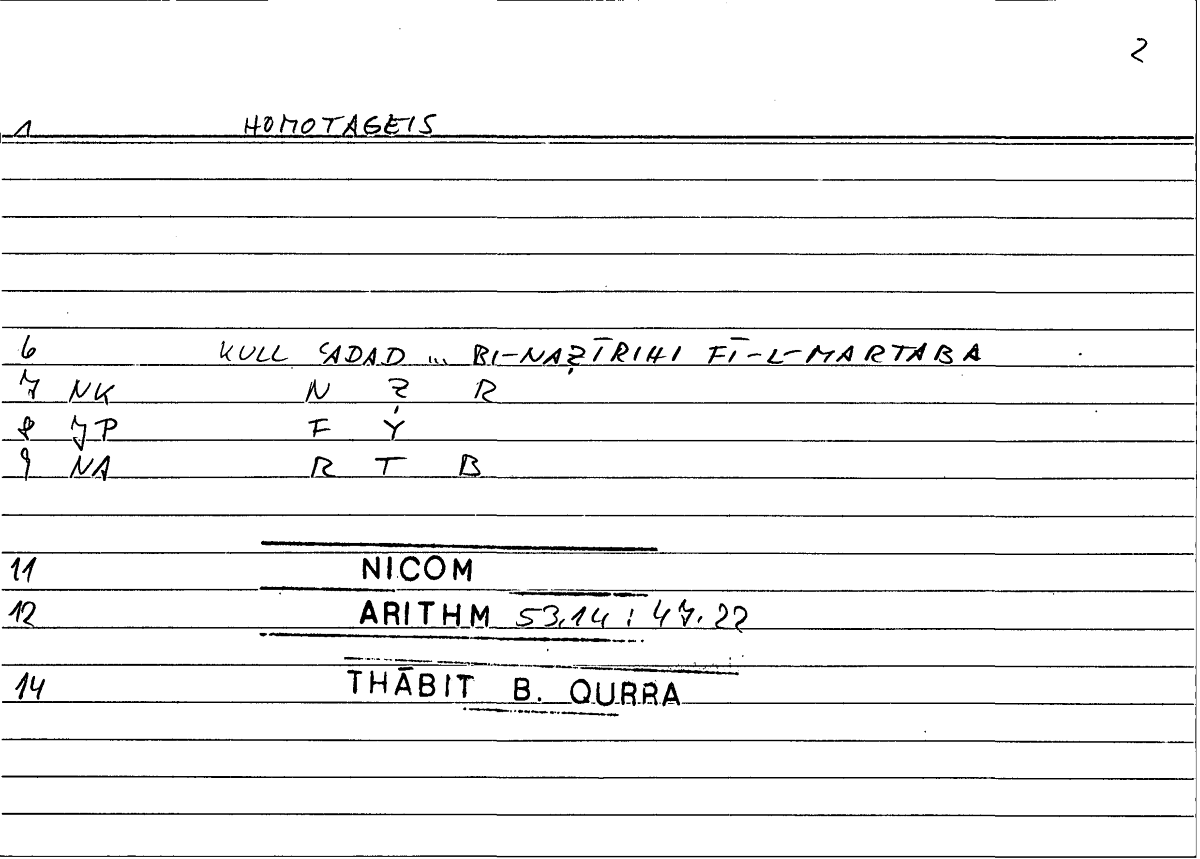 2
1 HOMOTAGEIS
6 KULL ʿADAD ... BI-NAẒĪRIHI FĪ-L-MARTABA
7 NK N Ẓ R
8 JP F Y
9 NA R T B
11 NICOM
12 ARITHM 53.14 : 47.22
14 THĀBIT B. QURRA